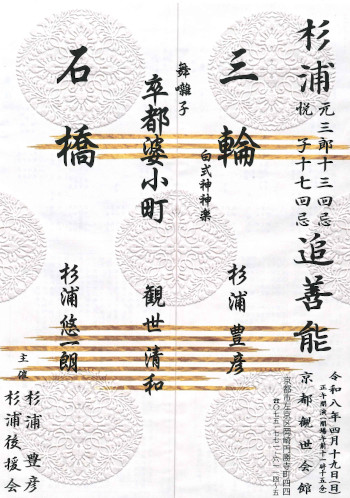 杉浦 元三郎十三回忌
悦子十七回忌 追善能
三輪 白式神神楽
杉浦 豊彦
舞囃子
卒都婆小町
観世 清和
石橋
杉浦 悠一朗
令和八年四月十九日(日)
正午開演(開場午前十一時十五分)
京都観世会館
京都市左京区岡崎円勝寺町四四
☎〇七五-七七一-六一一四
主催
杉浦 豊彦
杉浦後援会